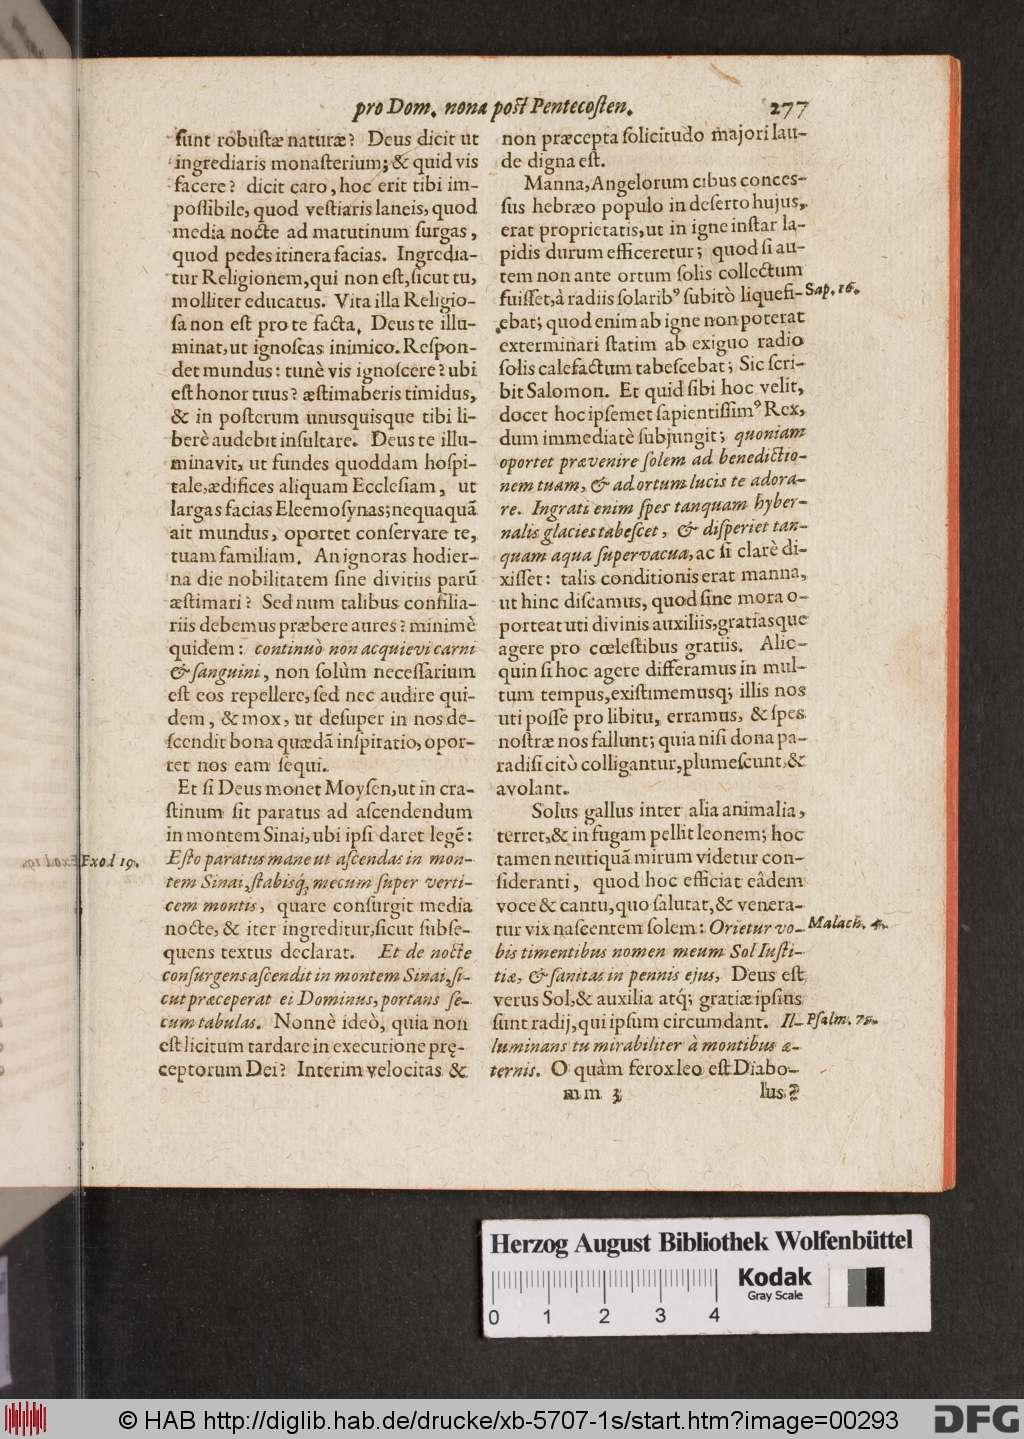 pro Dom. nona post Pentecosten. 277
sunt robustæ naturæ? Deus dicit ut
ingrediaris monasterium; & quid vis
facere? dicit caro, hoc erit tibi im-
possibile, quod vestiaris laneis, quod
media nocte ad matutinum surgas,
quod pedes itinera facias. Ingredia-
tur Religionem, qui non est, sicut tu,
molliter educatus. Vita illa Religio-
sa non est pro te facta. Deus te illu-
minat, ut ignoscas inimico. Respon-
det mundus: tunè vis ignoscere? ubi
est honor tuus? æstimaberis timidus,
& in posterum unusquisque tibi li-
berè audebit insultare. Deus te illu-
minavit, ut fundes quoddam hospi-
tale, ædifices aliquam Ecclesiam, ut
largas facias Eleemosynas; nequaquā
ait mundus, oportet conservare te,
tuam familiam. An ignoras hodier-
na die nobilitatem sine divitiis parū
æstimari? Sed num talibus consilia-
riis debemus præbere aures? minimè
quidem: continuò non acquievi carni
& sanguini, non solùm necessarium
est eos repellere, sed nec audire qui-
dem, & mox, ut desuper in nos de-
scendit bona quædā inspiratio, opor-
tet nos eam sequi.
Et si Deus monet Moysen, ut in cra-
stinum sit paratus ad ascendendum
in montem Sinai, ubi ipsi daret legē:
Exod 19. Esto paratus mane ut ascendas in mon-
tem Sinai, stabisq́; mecum super verti-
cem montis, quare consurgit media
nocte, & iter ingreditur, sicut subse-
quens textus declarat. Et de nocte
consurgens ascendit in montem Sinai, si-
cut præceperat ei Dominus, portans se-
cum tabulas. Nonnè ideò, quia non
est licitum tardare in executione prę-
ceptorum Dei? Interim velocitas &
non præcepta solicitudo majori lau-
de digna est.
Manna, Angelorum cibus conces-
sus hebræo populo in deserto hujus,
erat proprietatis, ut in igne instar la-
pidis durum efficeretur; quod si au-
tem non ante ortum solis collectum
fuisset, à radiis solarib⁹ subitò liquefi- Sap. 16.
ebat; quod enim ab igne non poterat
exterminari statim ab exiguo radio
solis calefactum tabescebat; Sic scri-
bit Salomon. Et quid sibi hoc velit,
docet hoc ipsemet sapientissim⁹ Rex,
dum immediatè subjungit; quoniam
oportet prævenire solem ad benedictio-
nem tuam, & ad ortum lucis te adora-
re. Ingrati enim spes tanquam hyber-
nalis glacies tabescet, & disperiet tan-
quam aqua supervacua, ac si clarè di-
xisset: talis conditionis erat manna,
ut hinc discamus, quod sine mora o-
porteat uti divinis auxiliis, gratiasque
agere pro cœlestibus gratiis. Alic-
quin si hoc agere differamus in mul-
tum tempus, existimemusq; illis nos
uti posse pro libitu, erramus, & spes
nostræ nos fallunt; quia nisi dona pa-
radisi citò colligantur, plumescunt, &
avolant.
Solus gallus inter alia animalia,
terret, & in fugam pellit leonem; hoc
tamen neutiquā mirum videtur con-
sideranti, quod hoc efficiat eâdem
voce & cantu, quo salutat, & venera-
tur vix nascentem solem: Orietur vo- Malach. 4.
bis timentibus nomen meum Sol Iusti-
tiæ, & sanitas in pennis ejus, Deus est
verus Sol, & auxilia atq́; gratiæ ipsius
sunt radij, qui ipsum circumdant. Il- Psalm. 75.
luminans tu mirabiliter à montibus æ-
ternis. O quàm ferox leo est Diabo-
mm 3 lus?
Herzog August Bibliothek Wolfenbüttel
Kodak
Gray Scale
0 1 2 3 4
© HAB http://diglib.hab.de/drucke/xb-5707-1s/start.htm?image=00293
DFG